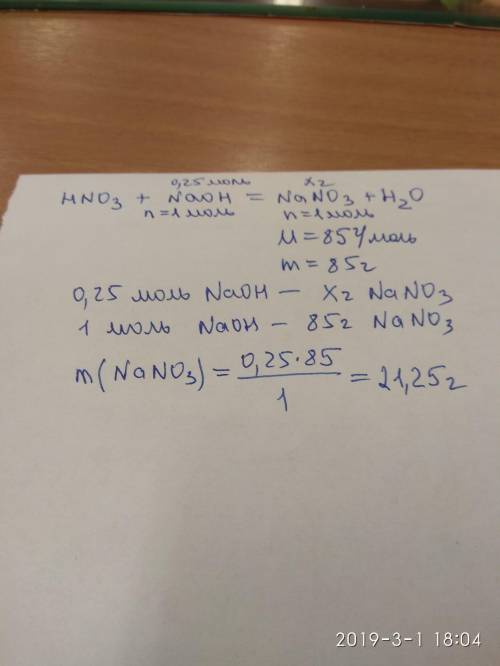 0,25 моль xг
HNO₃ + NaOH = NaNO₃ + H₂O
n = 1 моль n = 1 моль
M = 85 г/моль
m = 85г
0,25 моль NaOH — xг NaNO₃
1 моль NaOH — 85г NaNO₃
m(NaNO₃) = 0,25·85 / 1 = 21,25г
2019-3-1 18:04